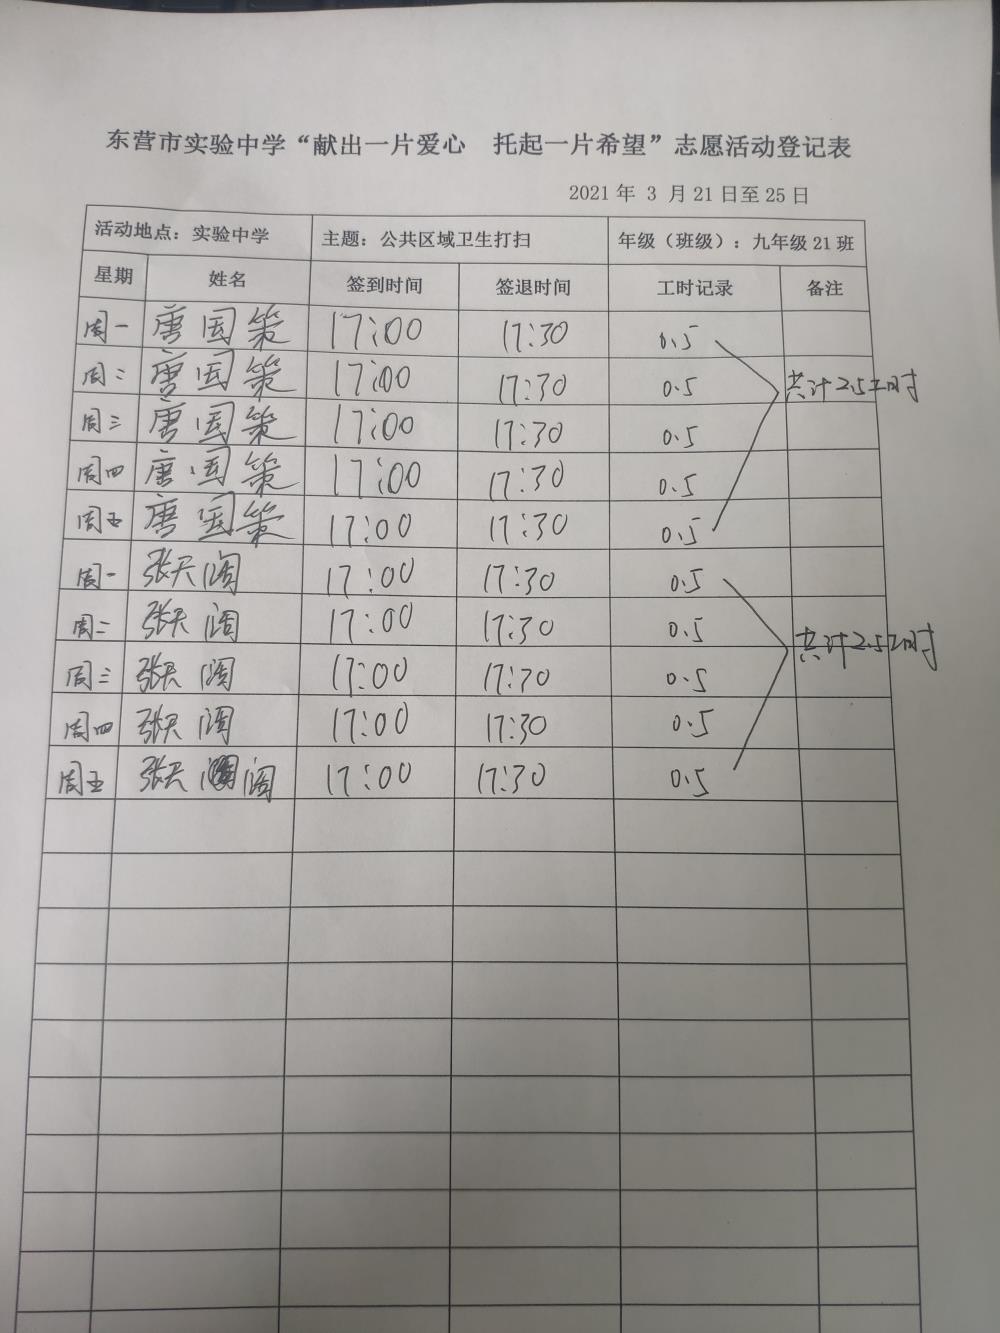 东营市实验中学“献出一片爱心 托起一片希望”志愿活动登记表
2021 年 3 月 21 日至 25 日
活动地点：实验中学 主题：公共区域卫生打扫 年级（班级）：九年级 21 班
星期 姓名 签到时间 签退时间 工时记录 备注
周一 唐国策 17:00 17:30 0.5
周二 唐国策 17:00 17:30 0.5 共计2.5工时
周三 唐国策 17:00 17:30 0.5
周四 唐国策 17:00 17:30 0.5
周五 唐国策 17:00 17:30 0.5
周一 张天阔 17:00 17:30 0.5
周二 张天阔 17:00 17:30 0.5 共计2.5工时
周三 张天阔 17:00 17:30 0.5
周四 张天阔 17:00 17:30 0.5
周五 张天阔 17:00 17:30 0.5